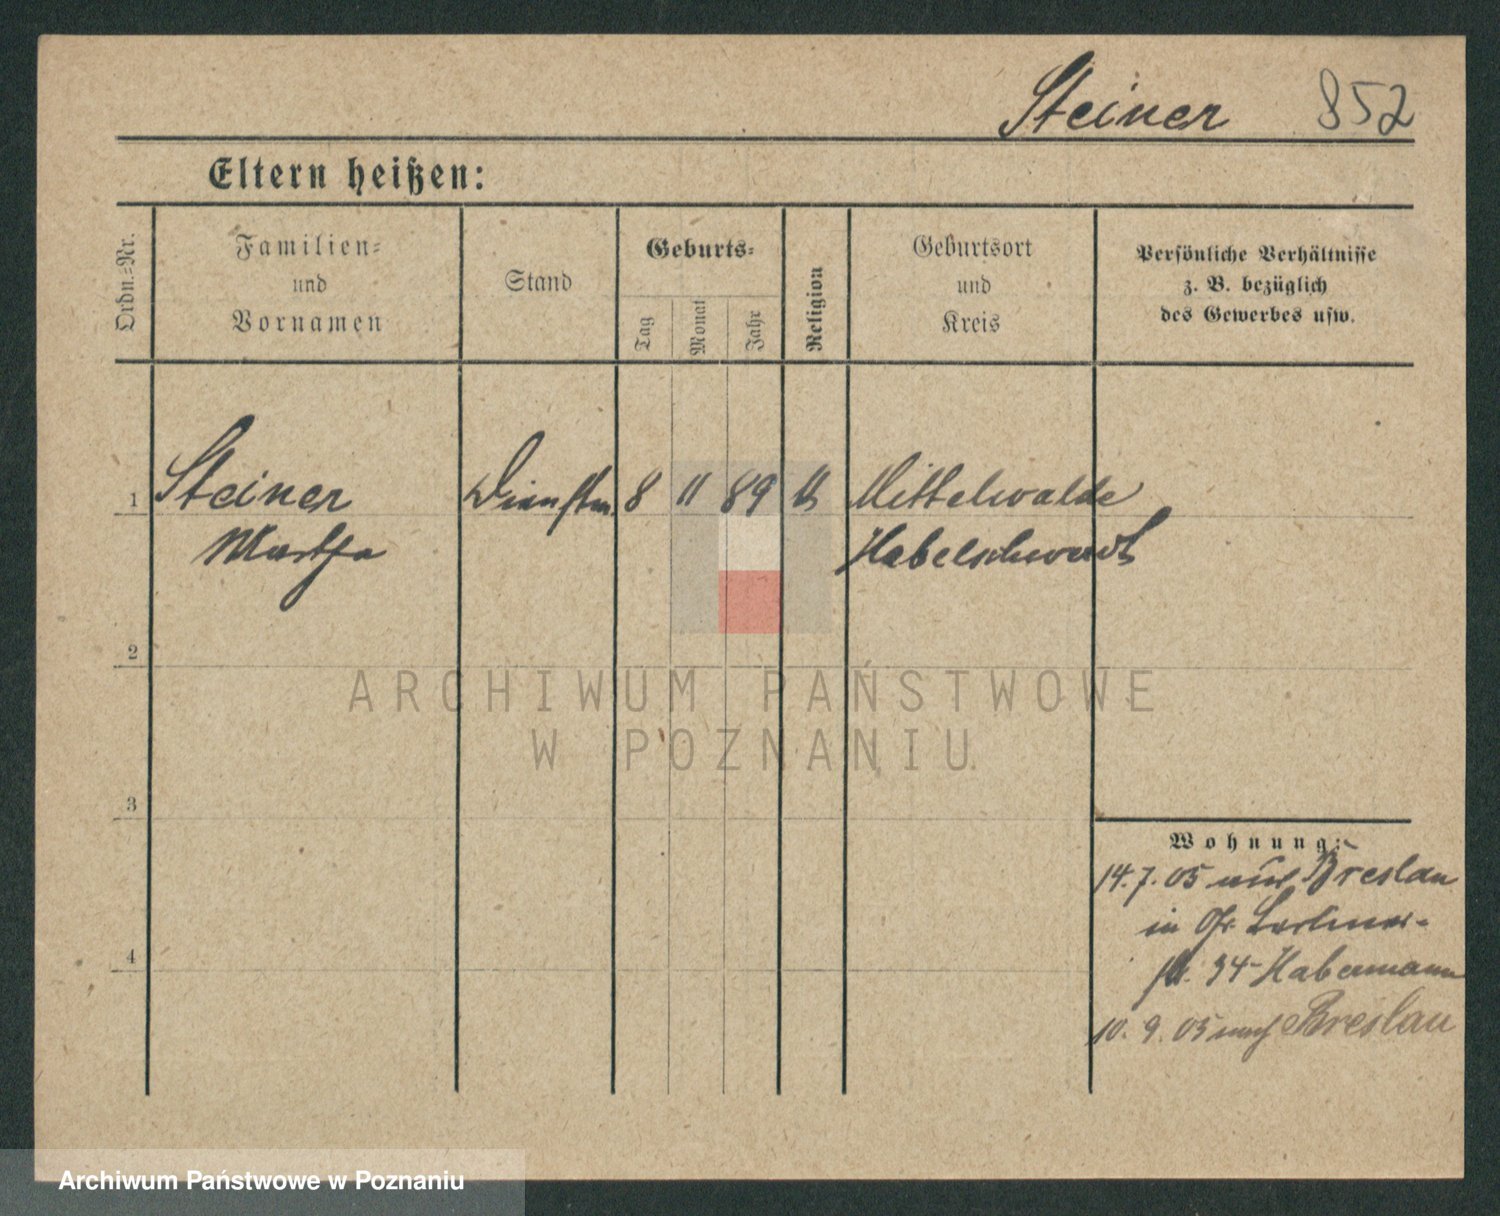 Steiner 852
Eltern heißen:
Ordn.=Nr.
Familien=
und
Vornamen
Stand
Geburts=
Tag
Monat
Jahr
Religion
Geburtsort
und
Kreis
Persönliche Verhältnisse
z. B. bezüglich
des Gewerbes usw.
1 Steiner Dienstm. 8 11 89 Mittelwalde
Martha Habelschwerdt
2
ARCHIWUM PAŃSTWOWE
W POZNANIU
3
Wohnung:
14.7.05 aus Breslau
in Gr. Berliner-
str. 34 Habermann
4
10.9.05 nach Breslau
Archiwum Państwowe w Poznaniu